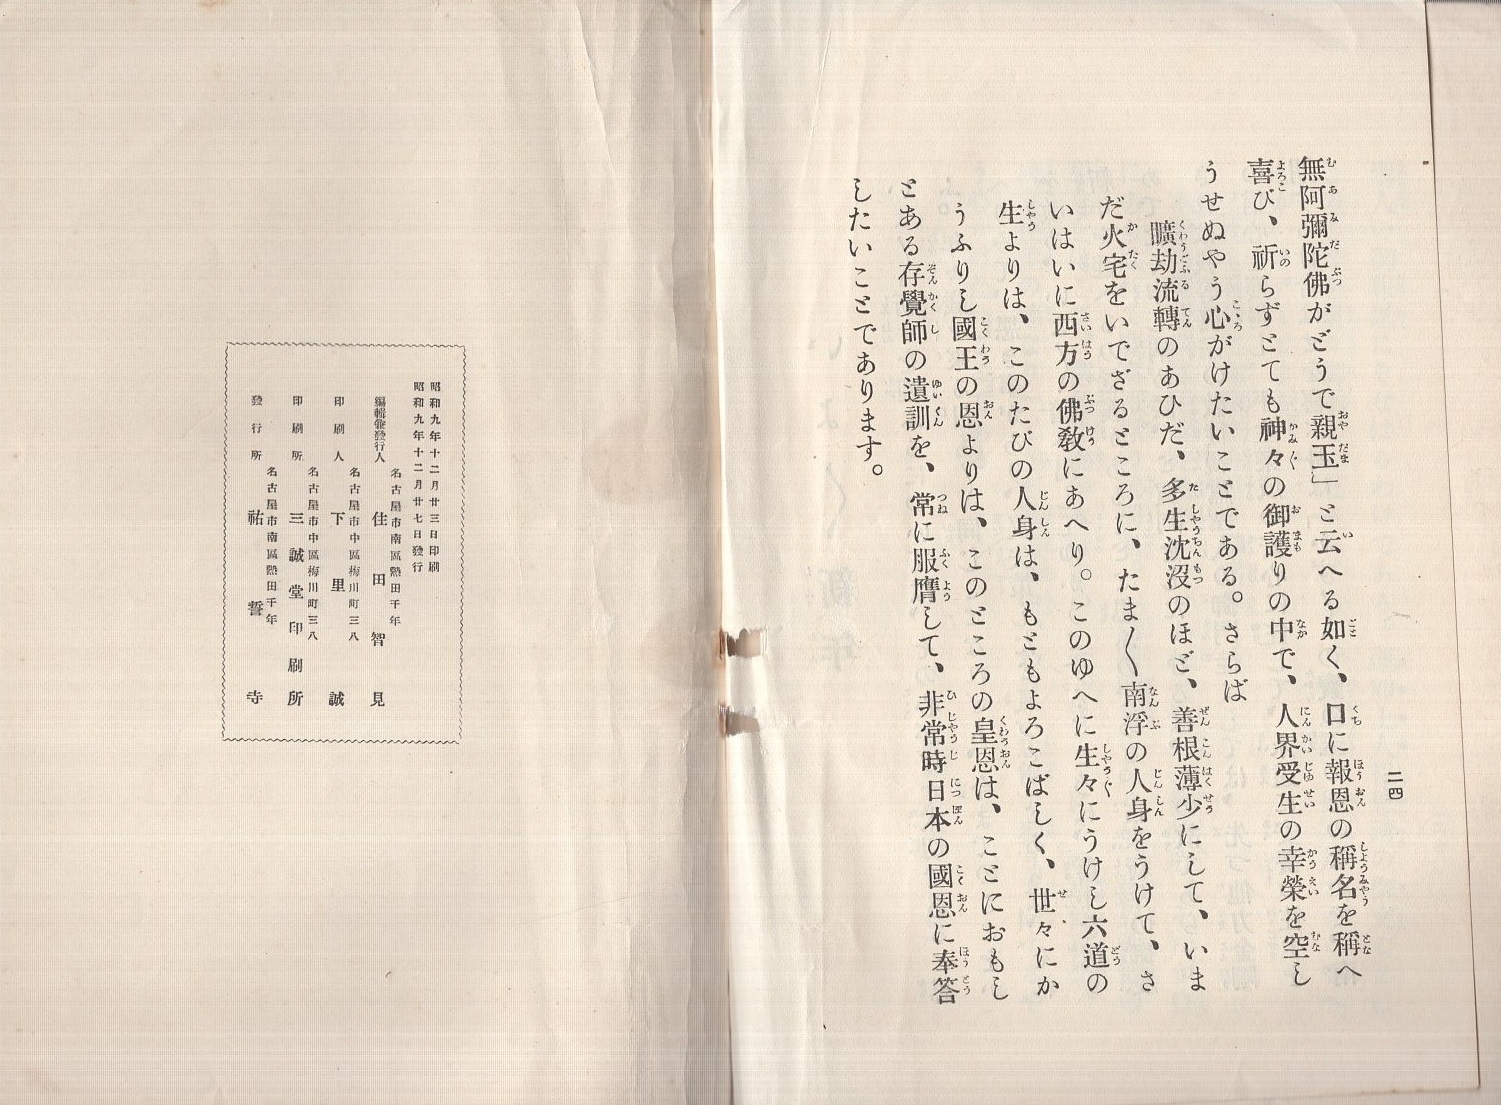 無阿彌陀佛がどうで親玉」と云へる如く、口に報恩の稱名を稱へ
喜び、祈らずとても神々の御護りの中で、人界受生の幸榮を空し
うせぬやう心がけたいことである。さらば
曠劫流轉のあひだ、多生沈沒のほど、善根薄少にして、いま
だ火宅をいでざるところに、たま〳〵南浮の人身をうけて、さ
いはいに西方の佛敎にあへり。このゆへに生々にうけし六道の
生よりは、このたびの人身は、もともよろこばしく、世々にか
うふりし國王の恩よりは、このところの皇恩は、ことにおもし
とある存覺師の遺訓を、常に服膺して、非常時日本の國恩に奉答
したいことであります。
二四
昭和九年十二月廿三日印刷
昭和九年十二月廿七日發行
名古屋市南區熱田千年
編輯兼發行人 住田智見
名古屋市中區梅川町三八
印刷人 下里誠
名古屋市中區梅川町三八
印刷所 三誠堂印刷所
名古屋市南區熱田千年
發行所 祐誓寺